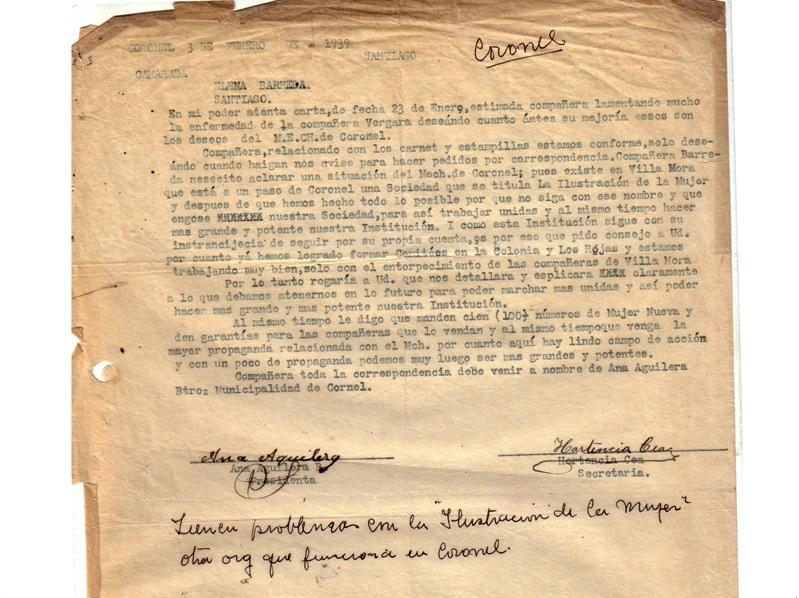 CORONEL 3 DE FEBRERO DE 1939
SANTIAGO
Coronel
CAMARADA
ELENA BARREDA.
SANTIAGO.
En mi poder atenta carta,de fecha 23 de Enero,estimada compañera lamentando mucho
la enfermedad de la compañera Vergara deseándo cuanto ántes su mejoría essos son
los deseos del M.E.CH.de Coronel.
Compañera,relacionado con los carnet y estampillas estamos conforme,solo dese-
ándo cuando haigan nos avise para hacer pedidos por correspondencia.Compañera Barre-
da nessecito aclarar una situación del Mech.de Coronel; pues existe en Villa Mora
que está a un paso de Coronel una Sociedad que se titula La Ilustración de la Mujer
y despues de que hemos hecho todo lo posible por que no siga con ese nombre y que
engose XXXXXXX nuestra Sociedad,para así trabajar unidas y al mismo tiempo hacer
mas grande y potente nuestra Institución. I como esta Institución sigue con su
instrancijecia de seguir por su propia cuenta,es por eso que pido consejo a Ud.
por cuanto yá hemos logrado formar Comitées en la Colonia y Los Rojas y estamos
trabajando muy bien,solo con el entorpecimiento de las compañeras de Villa Mora
Por lo tanto rogaría a Ud. que nos detallara y esplicara XXXX claramente
a lo que debamos atenernos en lo futuro para poder marchar mas unidas y así poder
hacer mas grande y mas potente nuestra Institución.
Al mismo tiempo le digo que manden cien (100) números de Mujer Nueva y
den garantías para las compañeras que lo vendan y al mismo tiempoque venga la
mayor propaganda relacionada con el Mch. por cuanto aquí hay lindo campo de acción
y con un poco de propaganda podemos muy luego ser mas grandes y potentes.
Compañera toda la correspondencia debe venir a nombre de Ana Aguilera
Btroz Municipalidad de Cornel.
Ana Aguilera
Hortencia Cea
Ana Aguilera B.
Hortencia Cea
Presidenta
Secretaria.
Tienen problemas con la "Ilustracion de la Mujer"
otra org que funciona en Coronel.